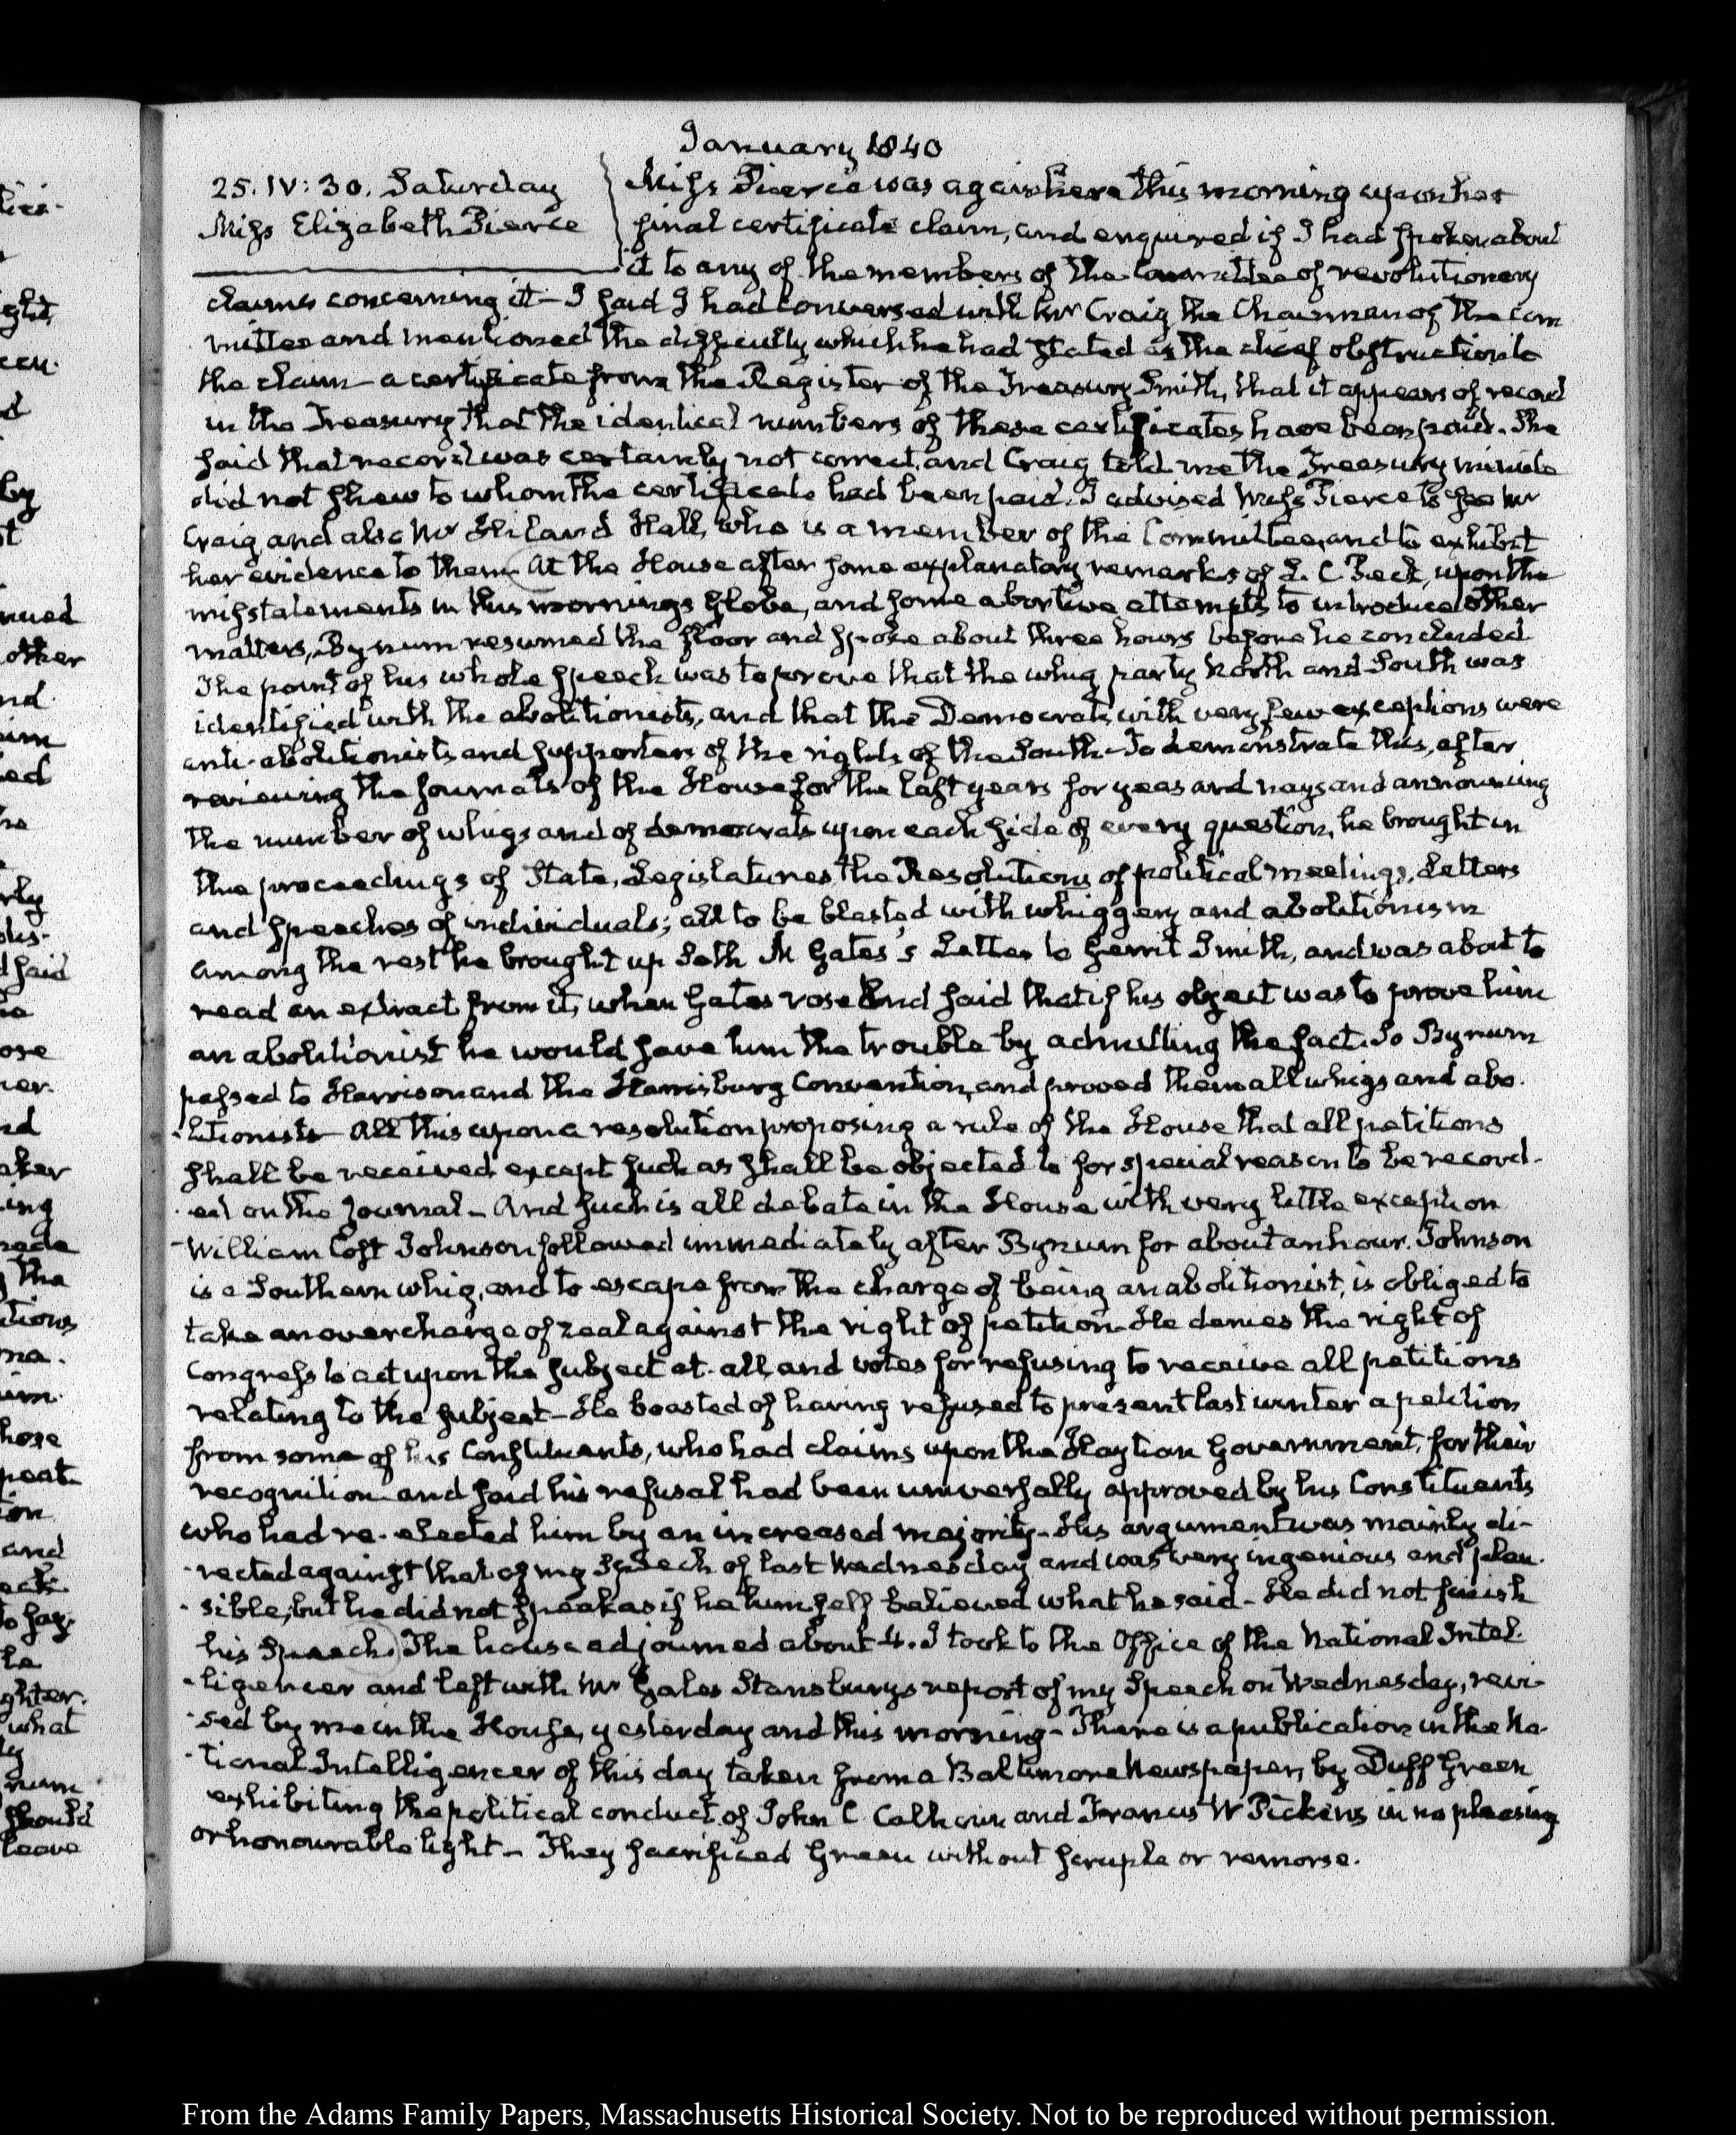 January 1840
25. IV: 30. Saturday
Miss Elizabeth Pierce
Miss Pierce was again here this morning upon her
final certificate claim, and enquired if I had spoken about
it to any of the members of the Committee of revolutionary
claims concerning it – I said I had conversed with Mr Craig the Chairman of the com
mittee and mentioned the difficulty which he had stated as the chief obstruction to
the claim – a certificate from the Register of the Treasury Smith, that it appears of record
in the Treasury that the identical numbers of these certificates have been paid. She
said that record was certainly not correct, and Craig told me the Treasury minute
did not shew to whom the certificate had been paid. I advised Miss Pierce to see Mr
Craig and also Mr Hiland Hall, who is a member of the Committee, and to exhibit
her evidence to them. At the House after some explanatory remarks of L. C. Peck, upon the
misstatements in this mornings Globe, and some abortive attempts to introduce other
matters, Bynum resumed the floor and spoke about three hours before he concluded
The point of his whole speech was to prove that the whig party North and South was
identified with the abolitionists, and that the Democrats, with very few exceptions were
anti-abolitionists and supporters of the rights of the South – To demonstrate this, after
reviewing the journals of the House for the last years for yeas and nays and announcing
the number of whigs and of democrats upon each side of every question, he brought in
the proceedings of State, Legislatures, the Resolutions of political meetings, Letters
and speeches of individuals; all to be blasted with whiggery and abolitionism
Among the rest he brought up Seth M Gates's Letter to Gerrit Smith, and was about to
read an extract from it, when Gates rose and said that if his object was to prove him
an abolitionist he would save him the trouble by admitting the fact. So Bynum
passed to Harrison and the Harrisburg Convention, and proved them all whigs and abo-
-litionists – All this upon a resolution proposing a rule of the House that all petitions
shall be received except such as shall be objected to for special reason to be record-
-ed on the Journal – And such is all debate in the House with very little exception
–William Cost Johnson followed immediately after Bynum for about an hour. Johnson
is a Southern whig, and to escape from the charge of being an abolitionist, is obliged to
take an overcharge of zeal against the right of petition – He denies the right of
Congress to act upon the subject at all, and votes for refusing to receive all petitions
relating to the subject – He boasted of having refused to present last winter a petition
from some of his Constituents, who had claims upon the Haytian Government, for their
recognition and said his refusal had been universally approved by his Constituents
who had re-elected him by an increased majority – His argument was mainly di-
-rected against that of my Speech of last Wednesday and was very ingenious and plau-
-sible; but he did not speak as if he himself believed what he said – He did not finish
his Speech. The house adjourned about 4. I took to the Office of the National Intel-
-ligencer and left with Mr Gales Stansburys report of my Speech on Wednesday, revi-
-sed by me in the House, yesterday and this morning – There is a publication in the Na-
-tional Intelligencer of this day taken from a Baltimore Newspaper, by Duff Green
exhibiting the political conduct of John C Calhoun and Francis W Pickens in no pleasing
or honourable light – They sacrificed Green without scruple or remorse.
From the Adams Family Papers, Massachusetts Historical Society. Not to be reproduced without permission.